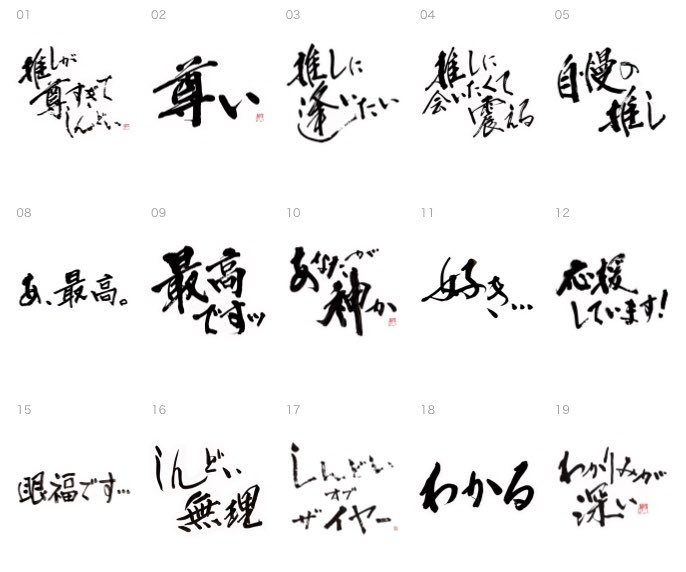 01
推しが
尊すぎて
しんどい
02
尊い
03
推しに
逢いたい
04
推しに
会いたくて
震える
05
自慢の
推し
08
あ、最高。
09
最高
ですッ
10
あなたが
神か
11
好き…
12
応援
しています!
15
眼福です…
16
しんどい
無理
17
しんどい
オブ
ザイヤー
18
わかる
19
わかりみが
深い